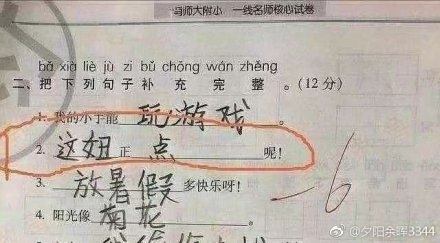 冯师大附小 一线名师核心试卷
bǎ xià liè jù zi bǔ chōng wán zhěng
二、把下列句子补充完整。(12分)
1. 我的小手能 玩游戏 。
2. 这妞 正 点 呢！
3. 放暑假 多快乐呀！
-6
4. 阳光像 菊花
@夕阳余晖3344